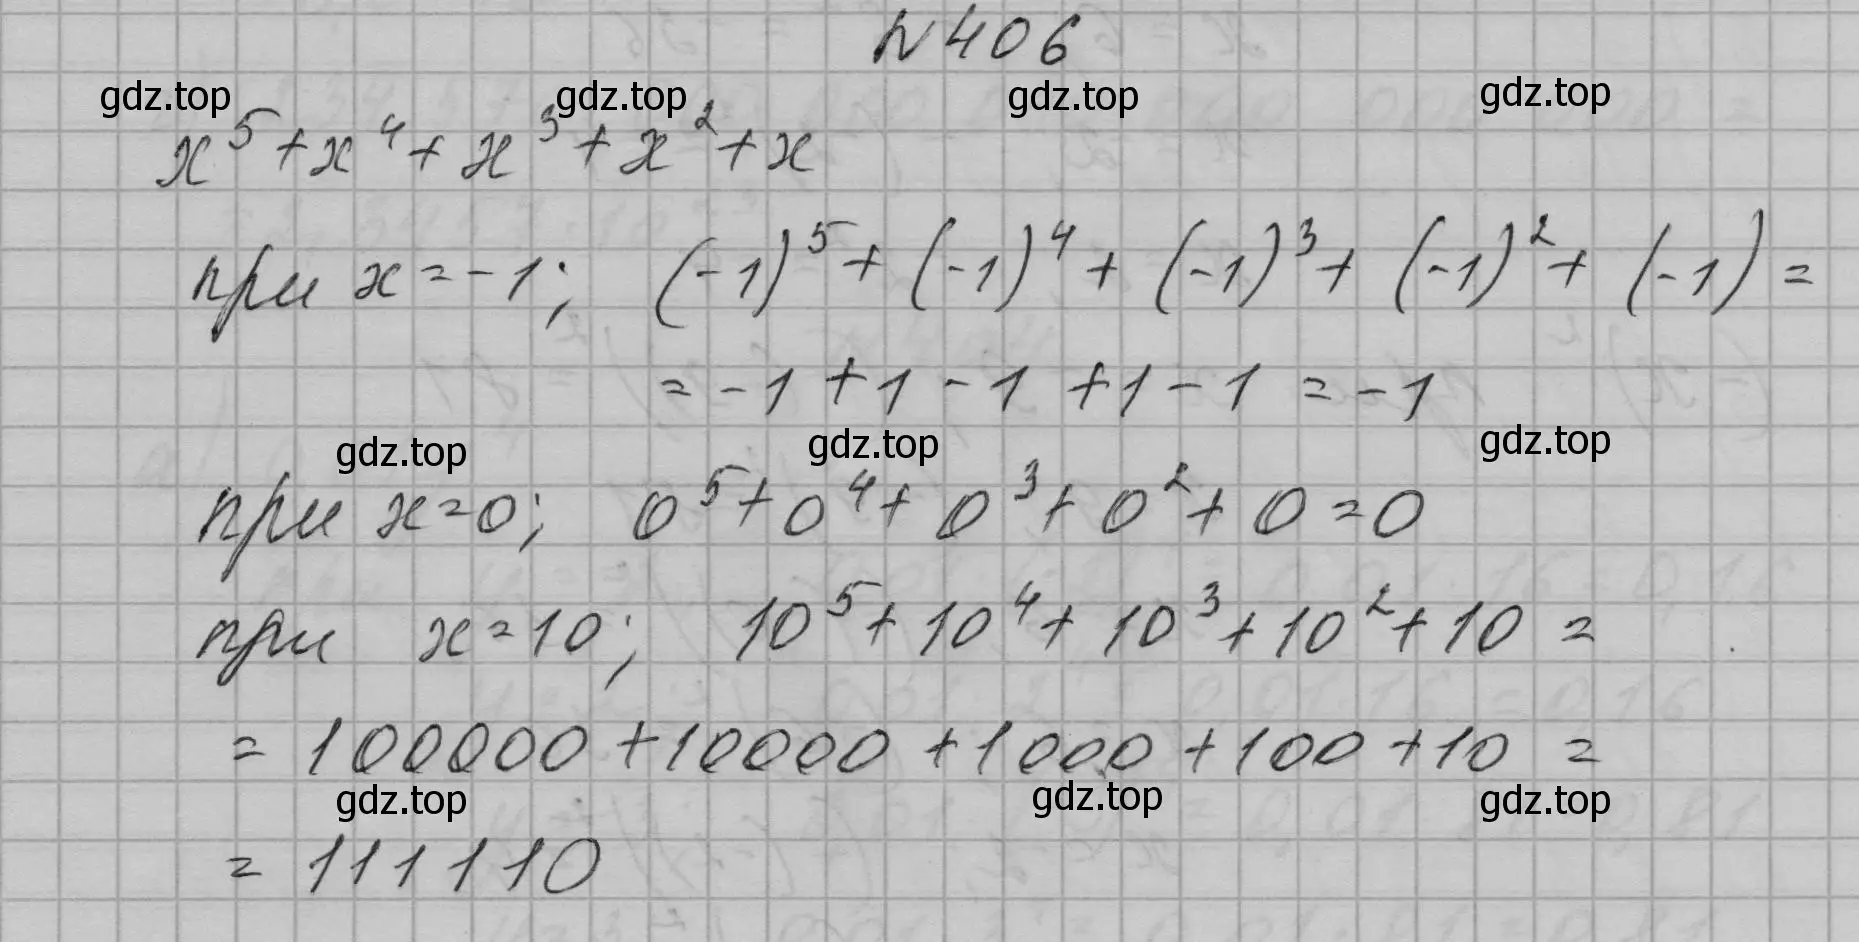 №406
gdz.top gdz.top gdz.top gdz.top
x⁵+x⁴+x³+x²+x
при x=-1; (-1)⁵+(-1)⁴+(-1)³+(-1)²+(-1)=
=-1+1-1+1-1=-1
gdz.top gdz.top gdz.top
при x=0; 0⁵+0⁴+0³+0²+0=0
при x=10; 10⁵+10⁴+10³+10²+10=
=100000+10000+1000+100+10=
gdz.top gdz.top gdz.top
=111110